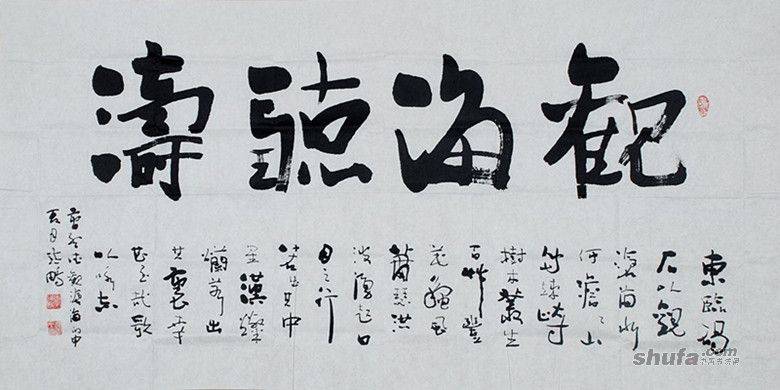 觀海聽濤
東臨碣
石以觀
滄海水
何澹々山
島竦峙
樹木叢生
百艸豐
茂秋風
蕭瑟洪
波湧起日
月之行
若出其中
星漢燦
爛若出
其裏幸
甚至哉歌
以詠志
觀滄海
shufa.com